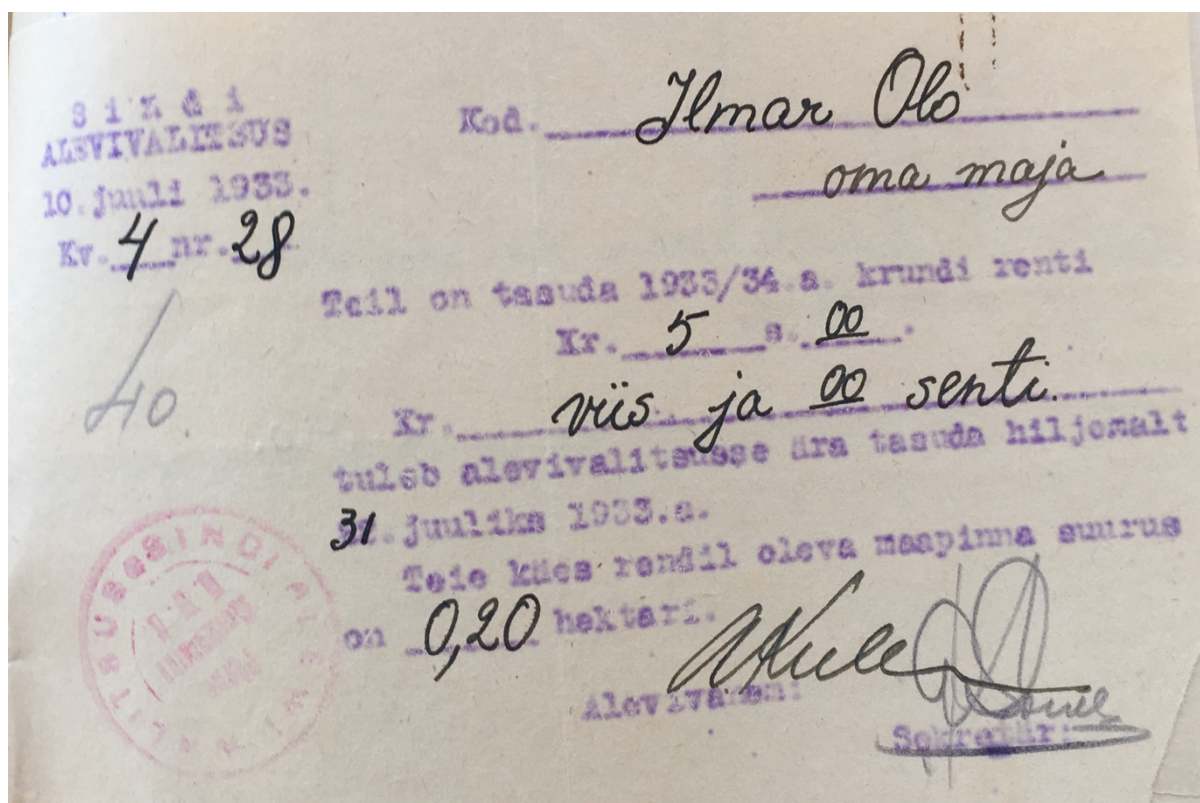 Sindi
ALEVIVALITSUS
10. juuli 1933.
Kv. 4 nr. 28
40.
Kod. Ilmar Olo
oma maja
Teil on tasuda 1933/34.a. krundi renti
Kr. 5 s. 00.
Kr. viis ja 00 senti.
tuleb alevivalitsusse ära tasuda hiljemalt
31. juuliks 1933.a.
Teie käes rendil oleva maapinna suurus
on 0,20 hektari.
Alevivanem:
Sekretär:
SINDI ALEVIVALITSUS